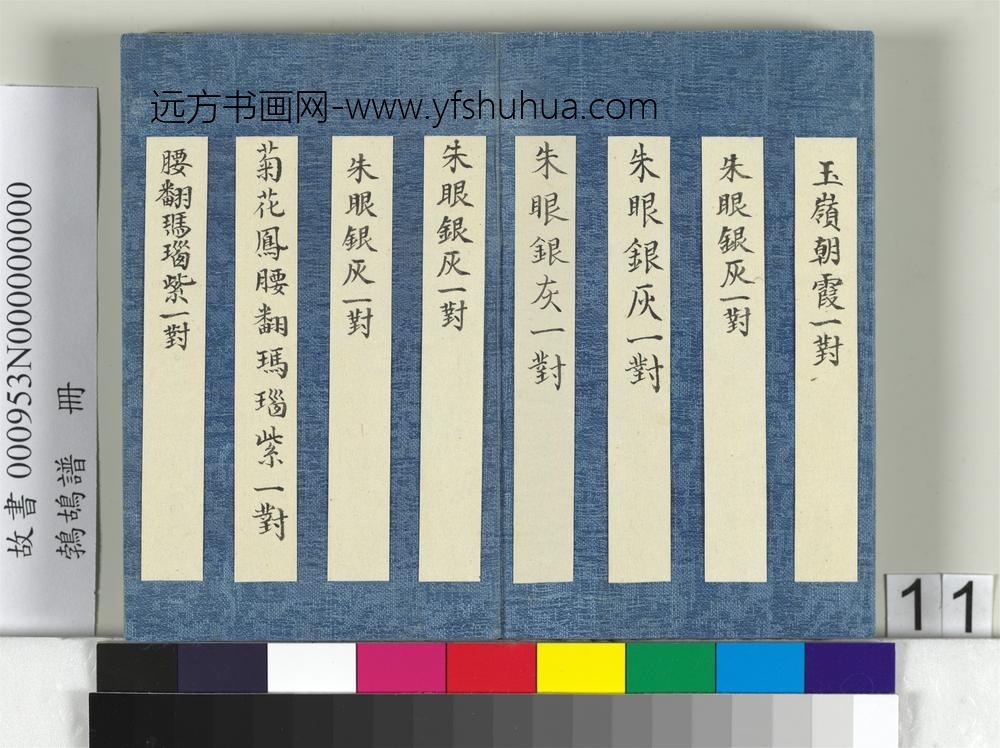 远方书画网-www.yfshuhua.com
玉嶺朝霞一對
朱眼銀灰一對
朱眼銀灰一對
朱眼銀灰一對
朱眼銀灰一對
朱眼銀灰一對
菊花鳳腰翻瑪瑙紫一對
腰翻瑪瑙紫一對
故書 000953N000000000
鵓鴣譜 冊
11